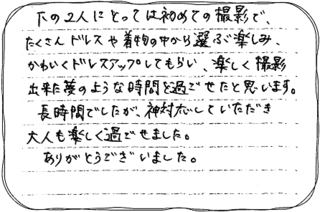 下の2人にとっては初めての撮影で、
たくさんドレスや着物の中から選ぶ楽しみ、
かわいくドレスアップしてもらい、楽しく撮影
出来た夢のような時間を過ごせたと思います。
長時間でしたが、神対応していただき
大人も楽しく過ごせました。
ありがとうございました。